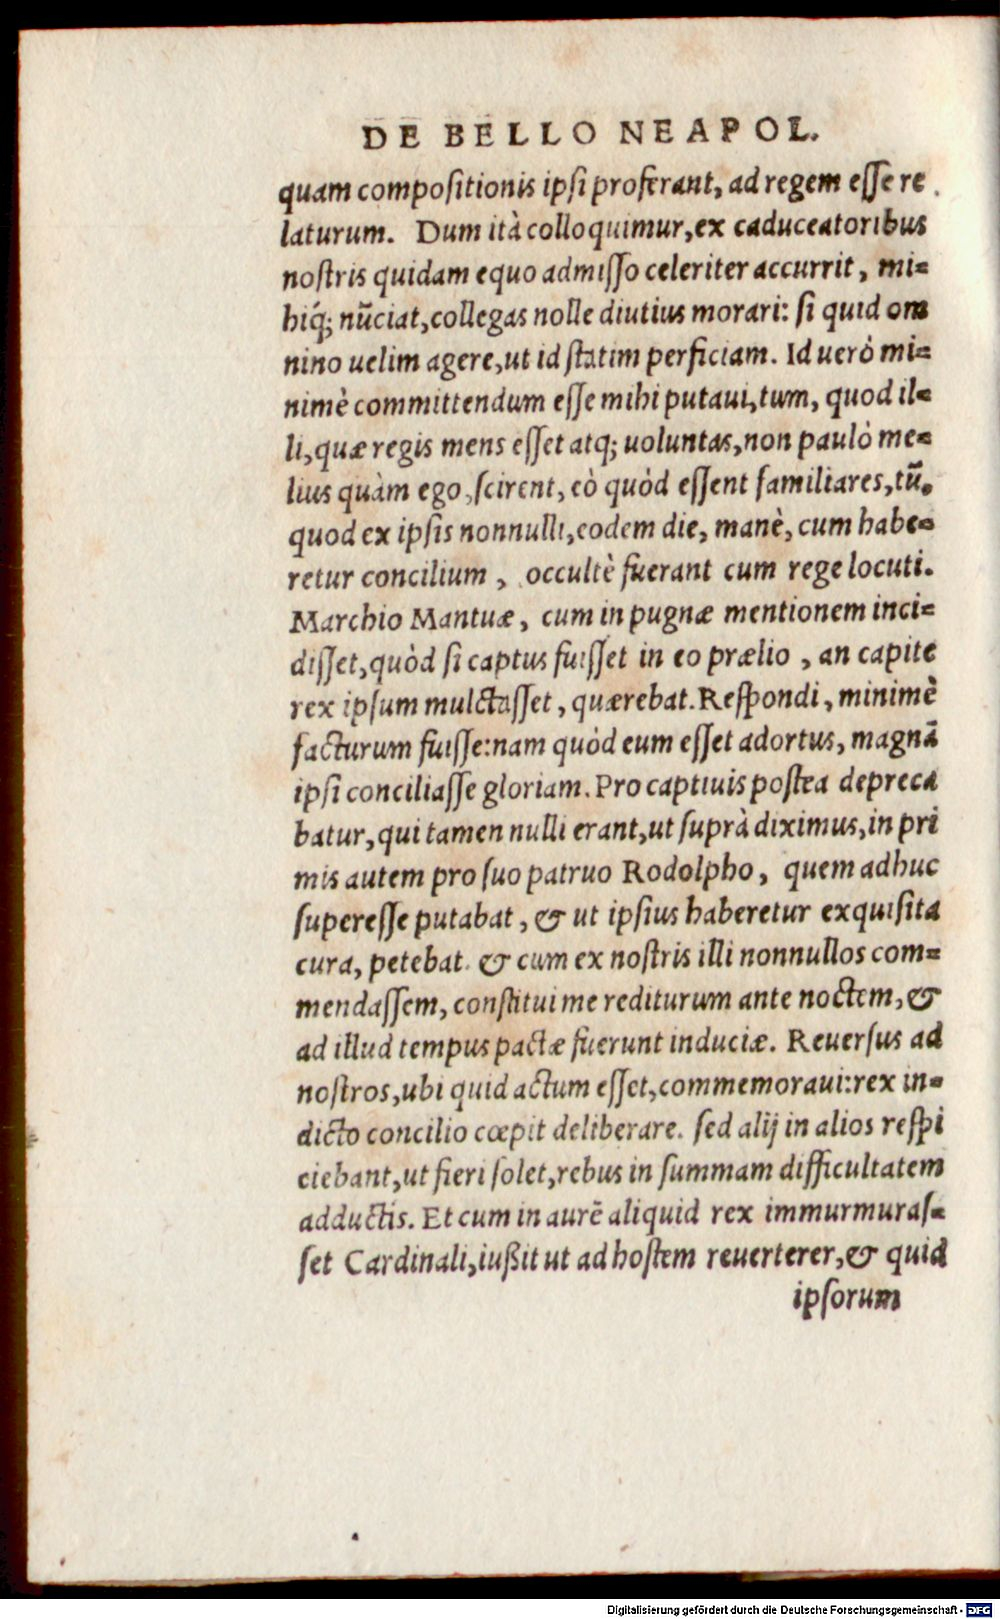 DE BELLO NEAPOL.
quam compositionis ipsi proferant, ad regem esse re
laturum. Dum ità colloquimur, ex caduceatoribus
nostris quidam equo admisso celeriter accurrit, mi=
hiq́; nūciat, collegas nolle diutius morari: si quid om
nino uelim agere, ut id statim perficiam. Id uerò mi=
nimè committendum esse mihi putaui, tum, quod il=
li, quæ regis mens esset atq; uoluntas, non paulò me=
lius quàm ego, scirent, eò quòd essent familiares, tū,
quod ex ipsis nonnulli, eodem die, manè, cum habe=
retur concilium, occultè fuerant cum rege locuti.
Marchio Mantuæ, cum in pugnæ mentionem inci=
disset, quòd si captus fuisset in eo prælio, an capite
rex ipsum mulctasset, quærebat. Respondi, minimè
facturum fuisse: nam quòd eum esset adortus, magnā
ipsi conciliasse gloriam. Pro captiuis postea depreca
batur, qui tamen nulli erant, ut suprà diximus, in pri
mis autem pro suo patruo Rodolpho, quem adhuc
superesse putabat, & ut ipsius haberetur exquisita
cura, petebat. & cum ex nostris illi nonnullos com=
mendassem, constitui me rediturum ante noctem, &
ad illud tempus pactæ fuerunt induciæ. Reuersus ad
nostros, ubi quid actum esset, commemoraui: rex in=
dicto concilio cœpit deliberare. sed alij in alios respi
ciebant, ut fieri solet, rebus in summam difficultatem
adductis. Et cum in aurē aliquid rex immurmuras=
set Cardinali, iußit ut ad hostem reuerterer, & quid
ipsorum
Digitalisierung gefördert durch die Deutsche Forschungsgemeinschaft - DFG